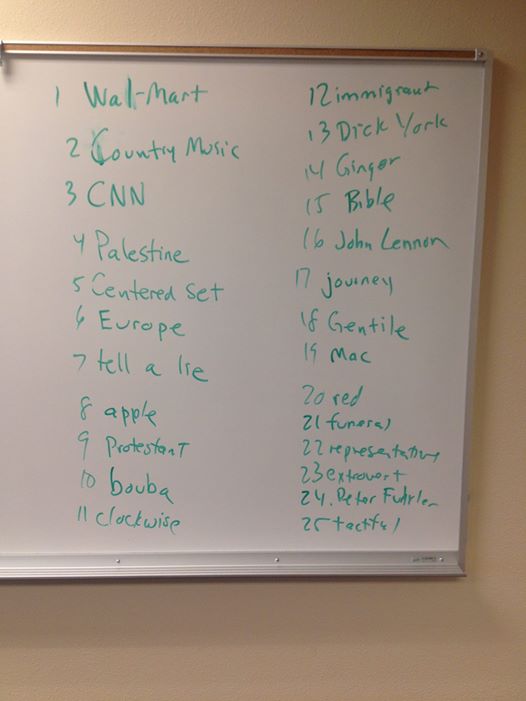 1 Wal-Mart
2 Country Music
3 CNN
4 Palestine
5 Centered Set
6 Europe
7 tell a lie
8 apple
9 Protestant
10 bouba
11 clockwise
12 immigrant
13 Dick York
14 Ginger
15 Bible
16 John Lennon
17 journey
18 Gentile
19 Mac
20 red
21 funeral
22 representative
23 extrovert
24. Peter
25 tactful